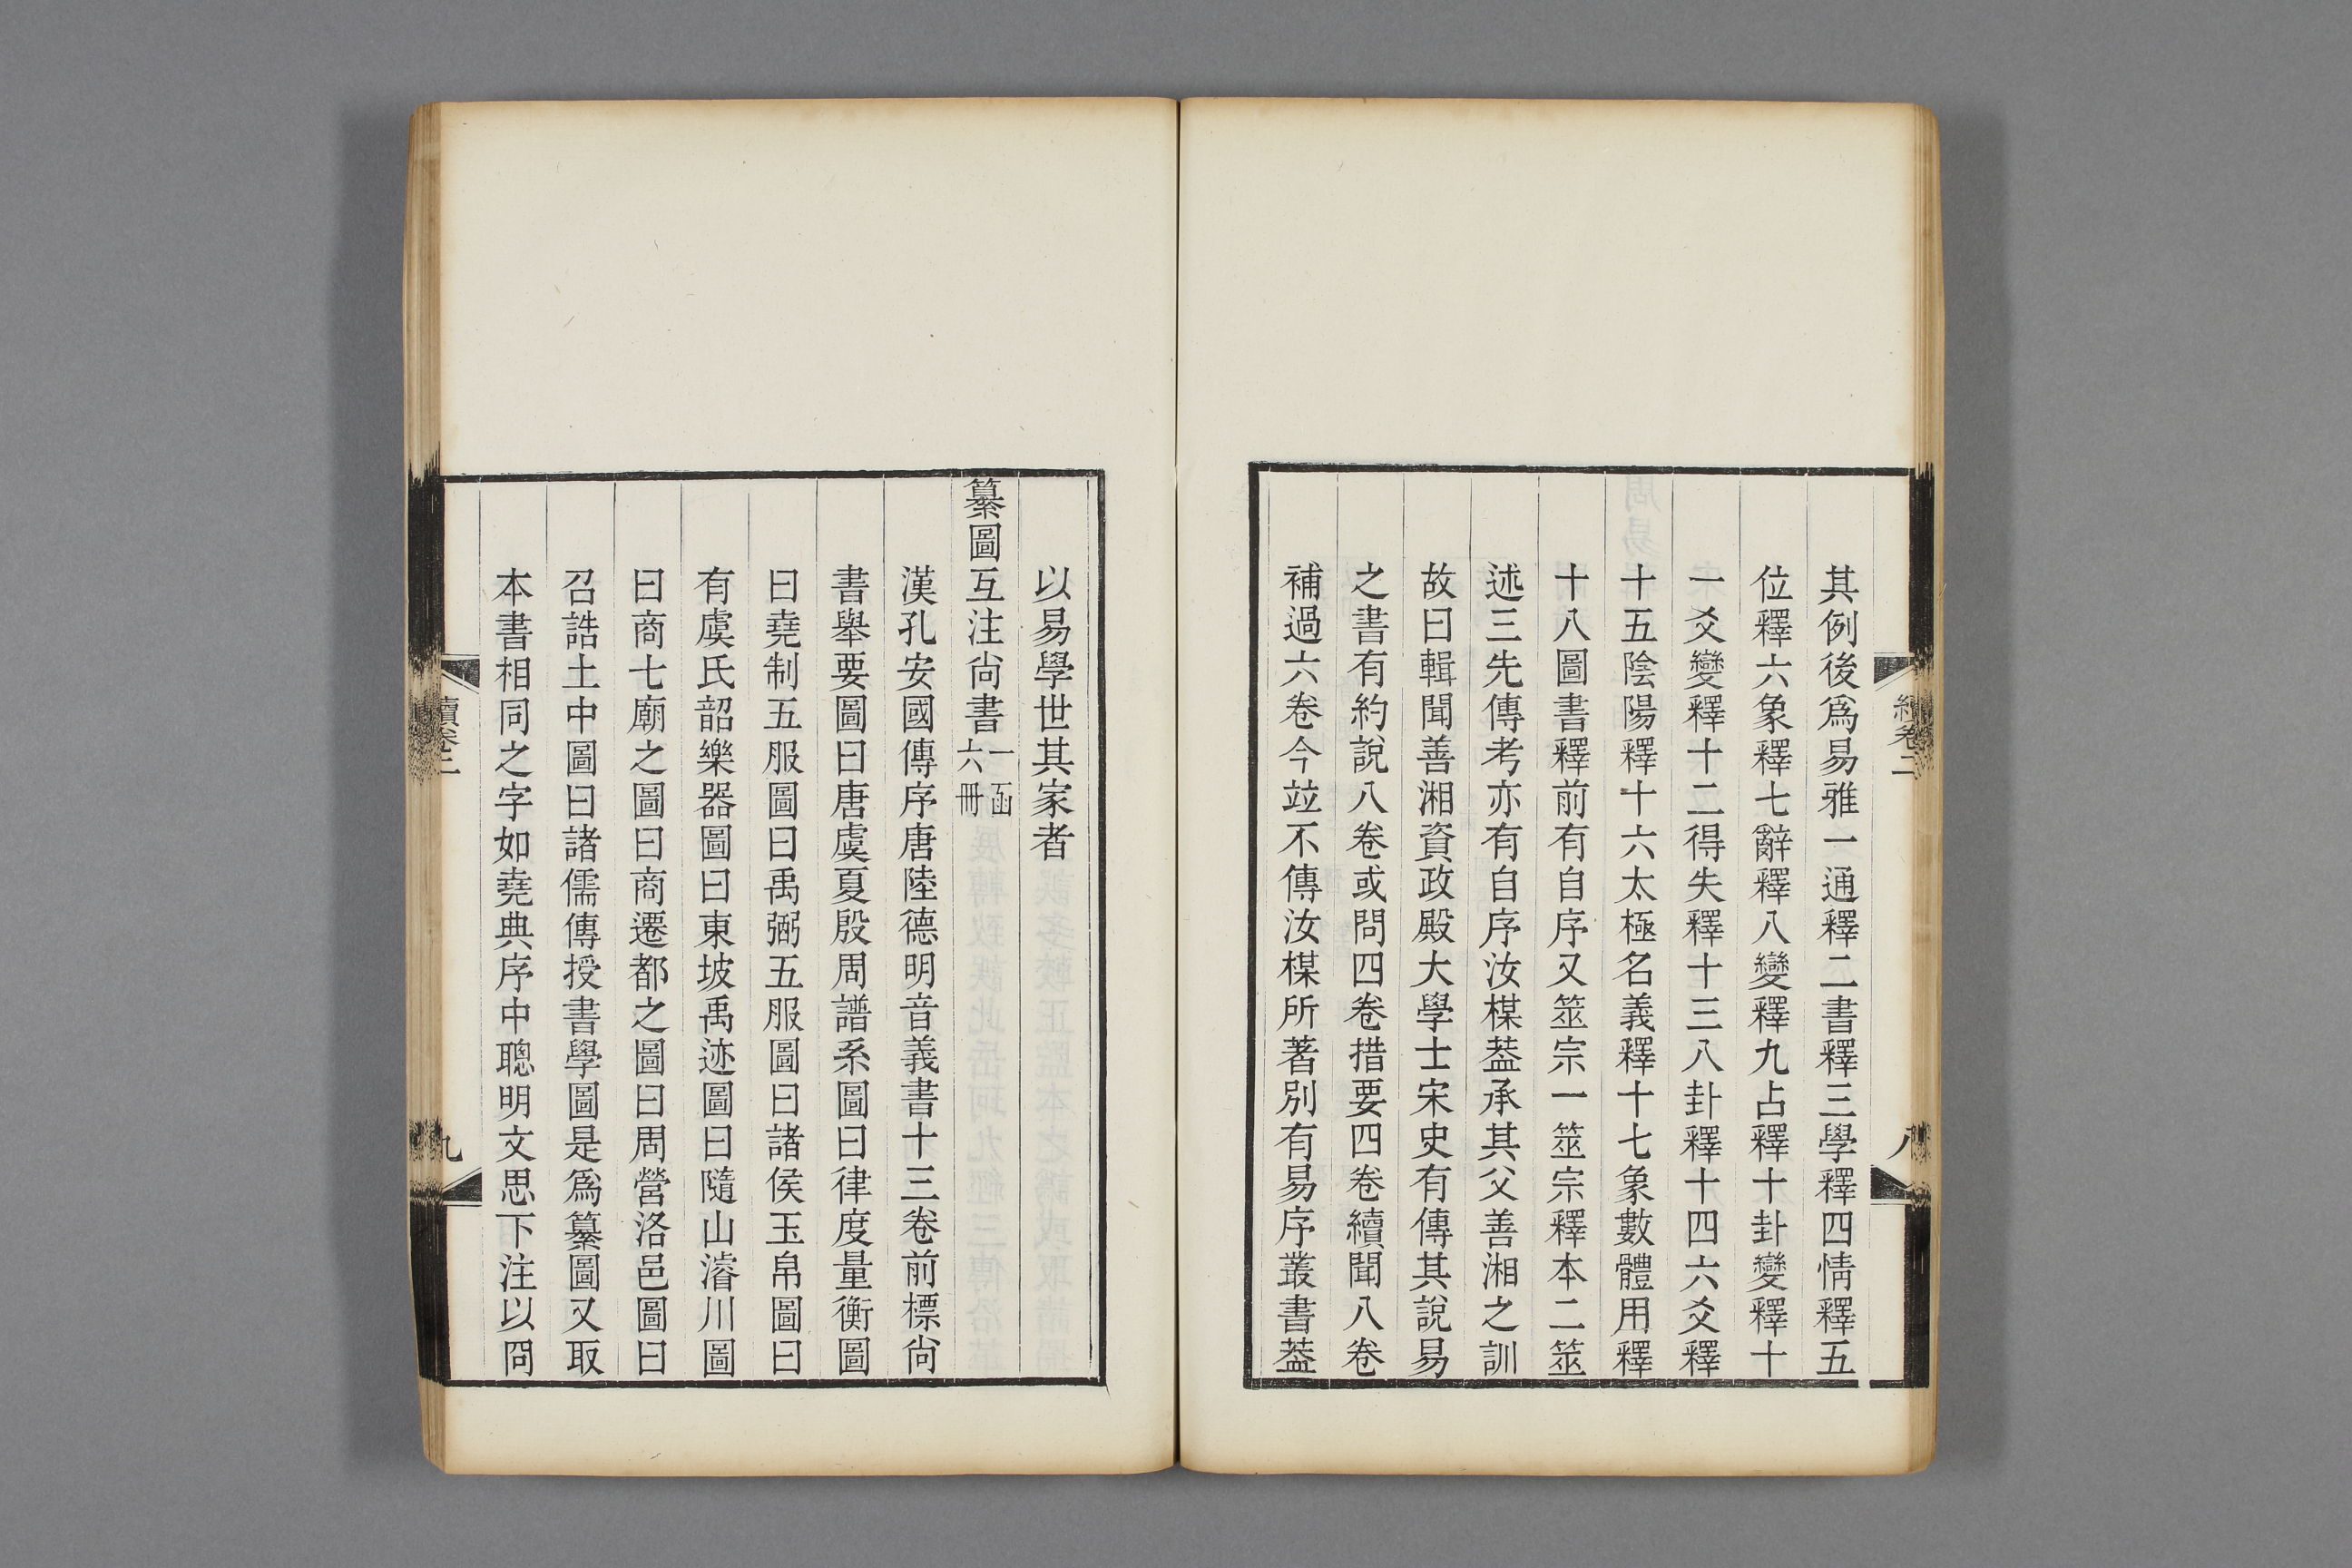 續卷二
八
其例後爲易雅一通釋二書釋三學釋四情釋五
位釋六象釋七辭釋八變釋九占釋十卦變釋十
一爻變釋十二得失釋十三八卦釋十四六爻釋
十五陰陽釋十六太極名義釋十七象數體用釋
十八圖書釋前有自序又筮宗一筮宗釋本二筮
述三先傳考亦有自序汝楳葢承其父善湘之訓
故曰輯聞善湘資政殿大學士宋史有傳其說易
之書有約說八卷或問四卷措要四卷續聞八卷
補過六卷今竝不傳汝楳所著別有易序叢書葢
以易學世其家者
纂圖互注尙書一函
六冊
漢孔安國傳序唐陸德明音義書十三卷前標尙
書舉要圖曰唐虞夏殷周譜系圖曰律度量衡圖
曰堯制五服圖曰禹弼五服圖曰諸侯玉帛圖曰
有虞氏韶樂器圖曰東坡禹迹圖曰隨山濬川圖
曰商七廟之圖曰商遷都之圖曰周營洛邑圖曰
召誥土中圖曰諸儒傳授書學圖是爲纂圖又取
本書相同之字如堯典序中聰明文思下注以冏
續卷二
九